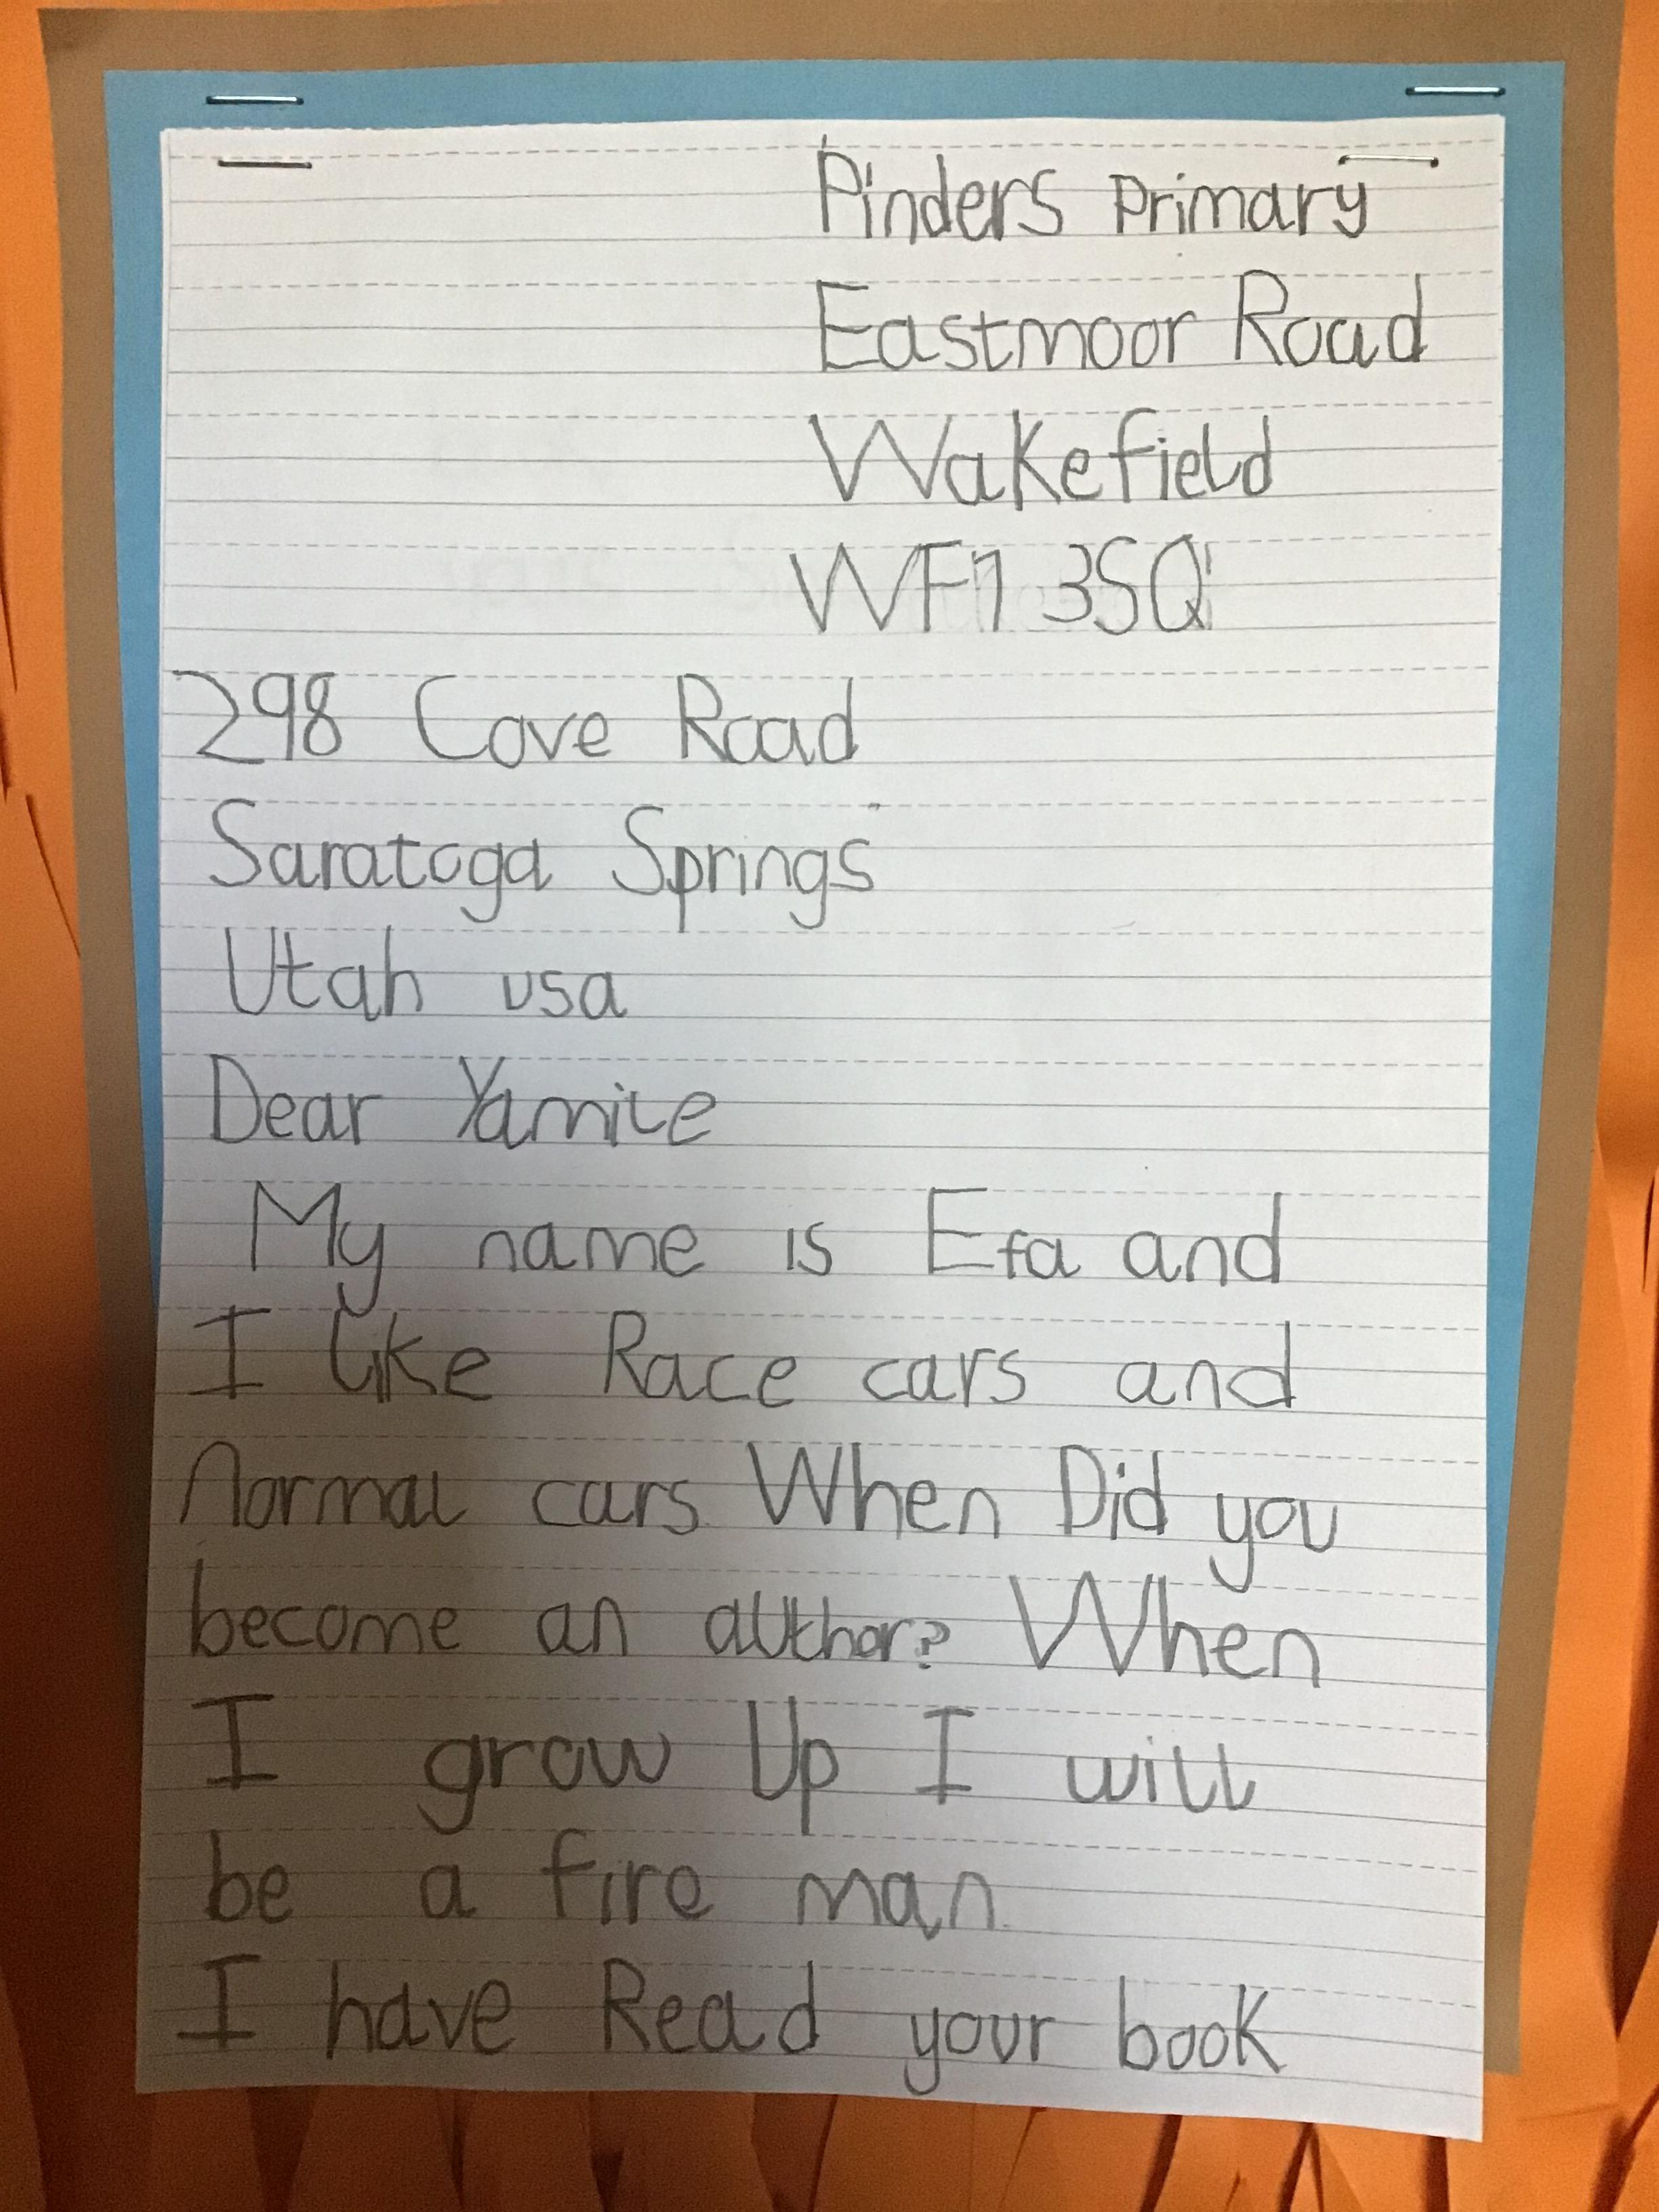 Pinders Primary
Eastmoor Road
Wakefield
WF1 3SQ
298 Cove Road
Saratoga Springs
Utah usa
Dear Yamile
My name is Efa and
I like Race cars and
normal cars. When Did you
become an author? When
I grow Up I will
be a fire man.
I have Read your book